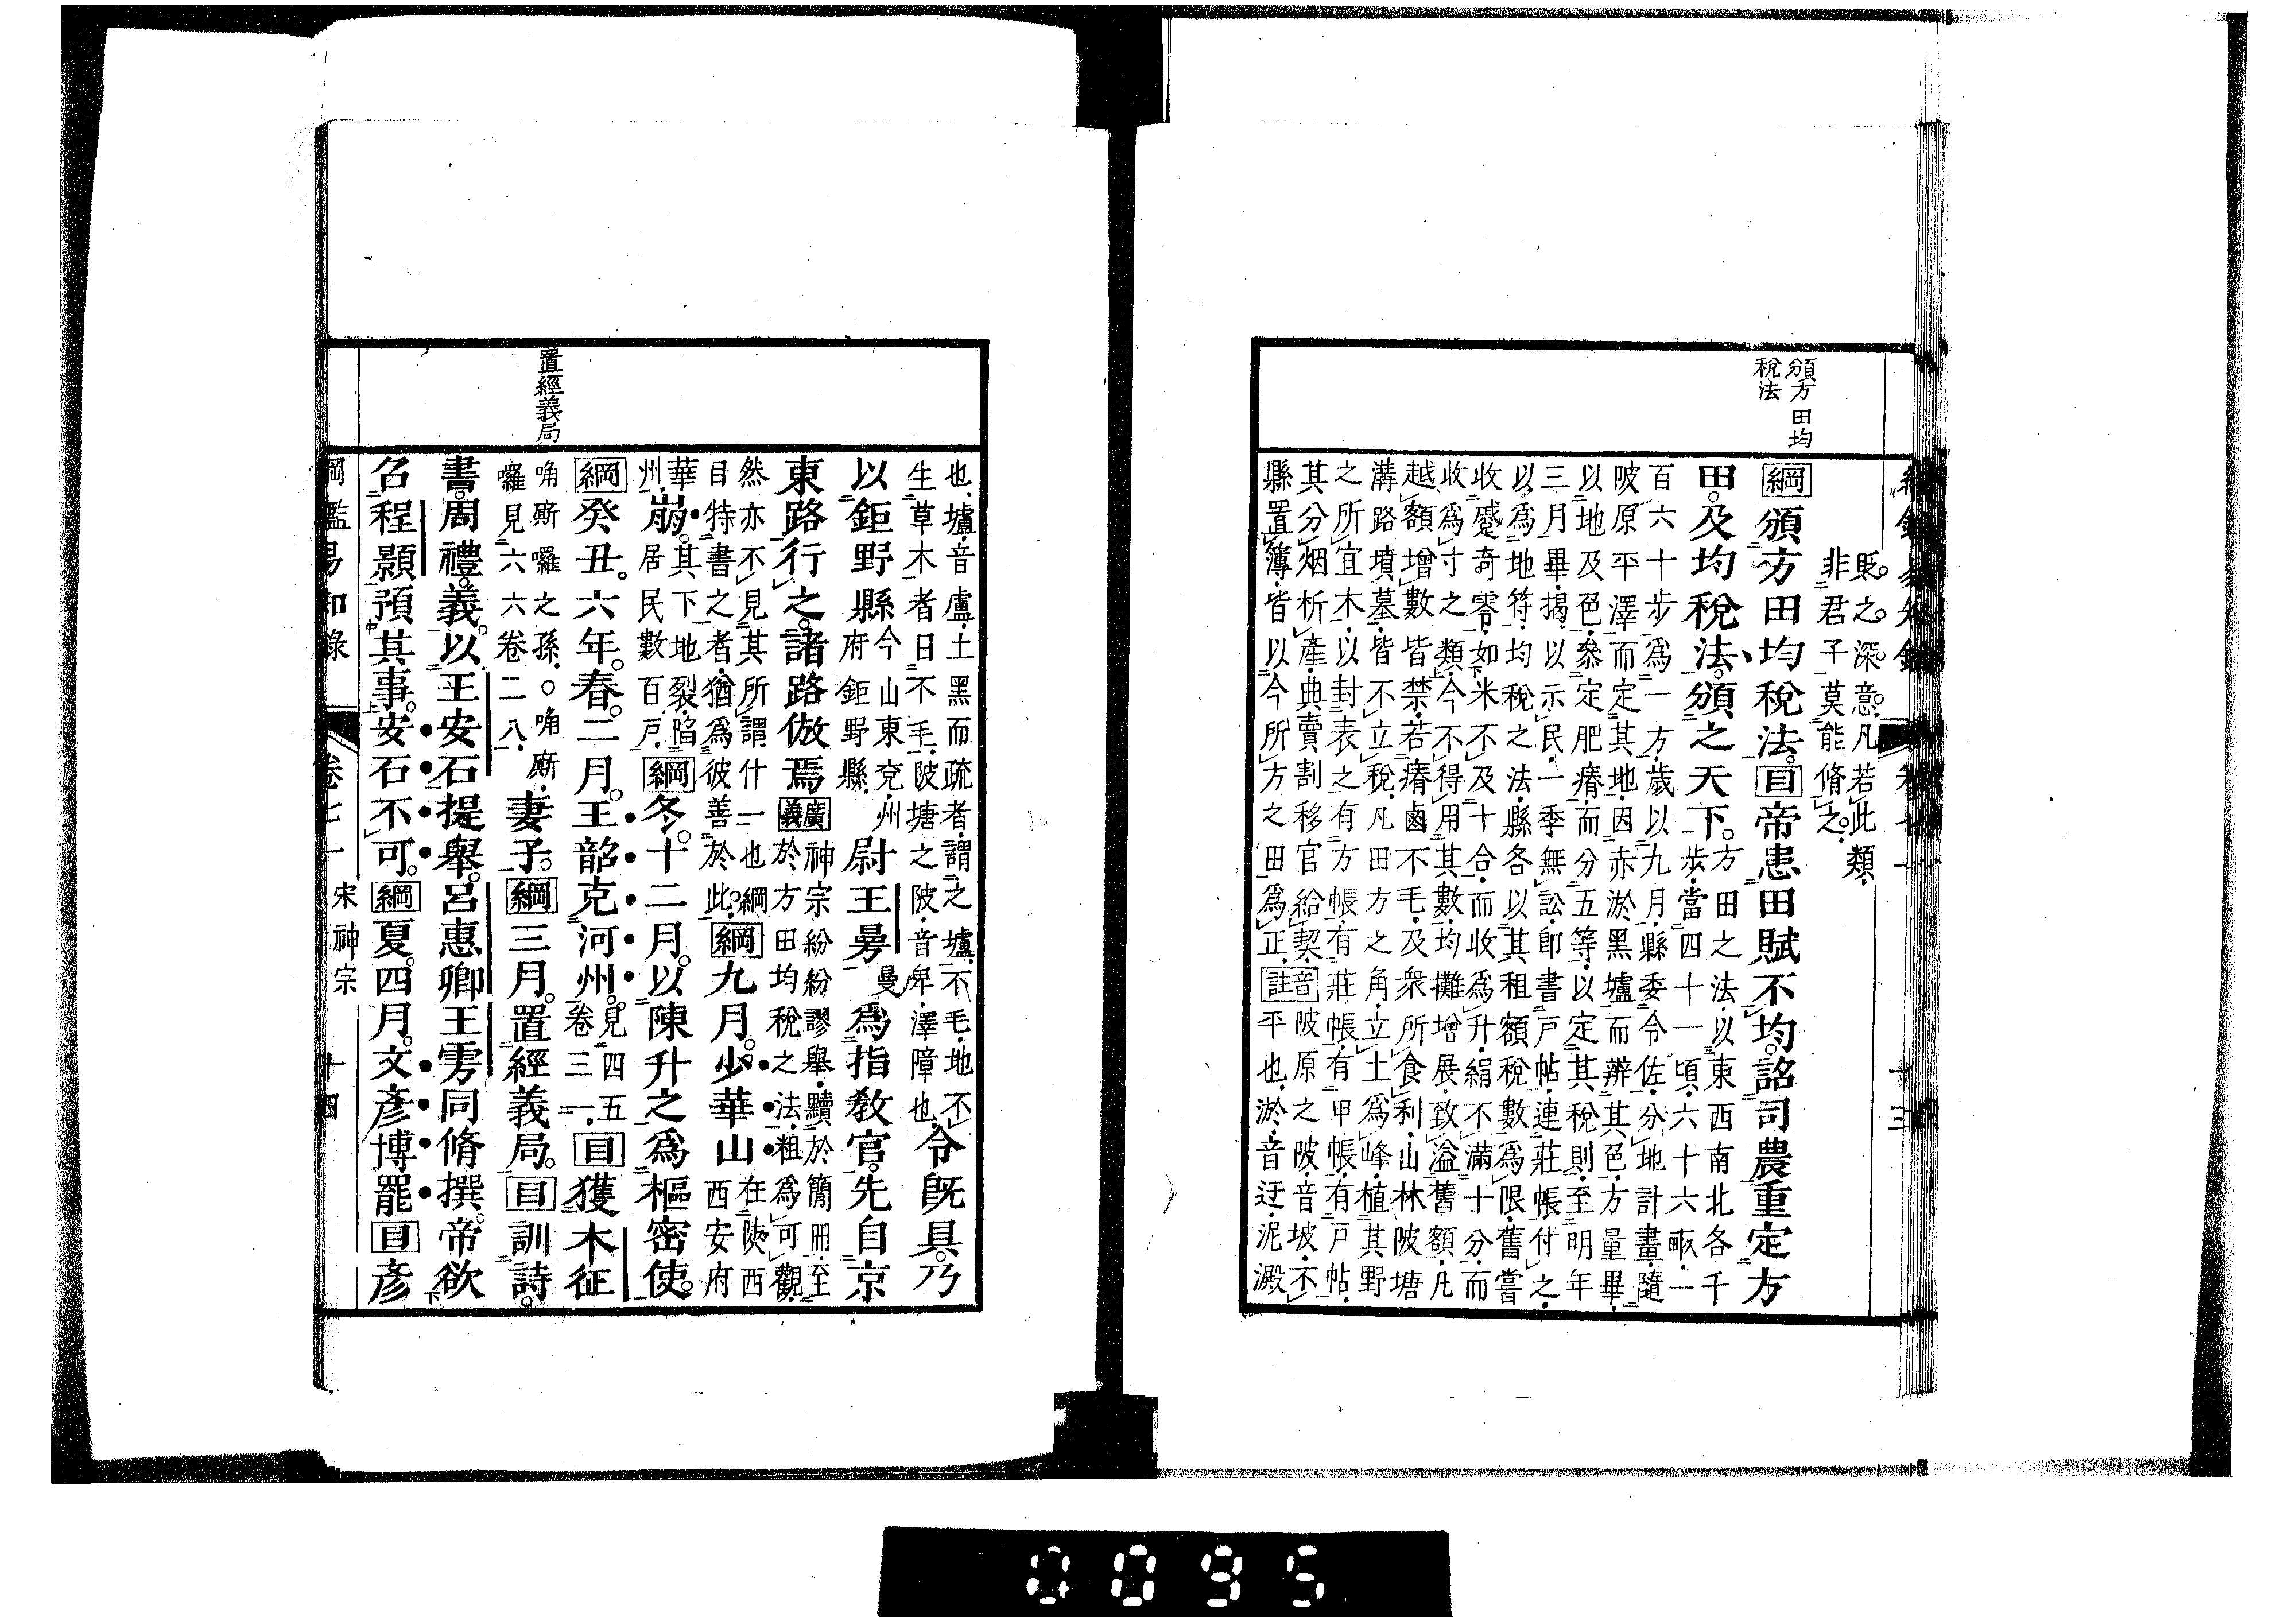 頒方田均
稅法
貶之深意。凡若此類、
非君子莫能脩之。
綱頒方田均稅法。目帝患田賦不均。詔司農重定方
田。及均稅法。頒之天下。方田之法、以東西南北各千
步、當四十一頃、六十六畝、一
百六十步為一方、歲以九月、縣委令佐、分地計畫、隨
陂原平澤而定其地、因赤淤黑壚而辨其色、方量畢、
以地及色、叅定肥瘠、而分五等、以定其稅則、至明年
三月畢、揭以示民、一季無訟、卽書戸帖、連莊帳付之、
以為地符、均稅之法、縣各以其租額稅數為限、舊嘗
收蹙奇零、如米不及十合、而收為升、絹不滿十分、而
收為寸之類、今不得用其數、均攤增展、致溢舊額、凡
越額增數皆禁、若瘠鹵不毛、及衆所食利、山林陂塘
溝路墳墓、皆不立稅、凡田方之角、立土為峰、植其野
之所宜木、以封表之、有方帳、有莊帳、有甲帳、有戸帖、
其分烟析產、典賣割移、官給契、
縣置簿、皆以今所方之田為正、
音註陂原之陂、音坡、不
平也、淤、音迂、泥澱
十三
置經義局
也、壚、音盧、土黑而疏者、謂之壚、不毛、地不
生草木者曰不毛、陂塘之陂、音卑、澤障也、令旣具。乃
以鉅野縣今山東兗州
府鉅野縣、尉王曼曼為指敎官。先自京
東路行之。諸路倣焉廣義神宗紛紛謬舉、黷於簡冊、至
於方田均稅之法、粗為可觀、
然亦不見其所謂什一也綱
目特書之者、猶為彼善於此、綱九月。少華山在陝西
西安府
華
州、崩。其下地裂、陷
居民數百戸、綱冬。十二月。以陳升之為樞密使。
綱癸丑。六年。春。二月。王韶克河州。見四五
卷三一、目獲木征
唃厮囉之孫、○唃厮、
囉見六六卷二八、妻子。綱三月。置經義局。目訓詩。
書。周禮。義。以王安石提舉。呂惠卿王雱同脩撰。帝欲
召程顥預其事。安石不可。綱夏。四月。文彥博罷目彥
綱鑑易知錄 卷七一 宋神宗 十四
0095